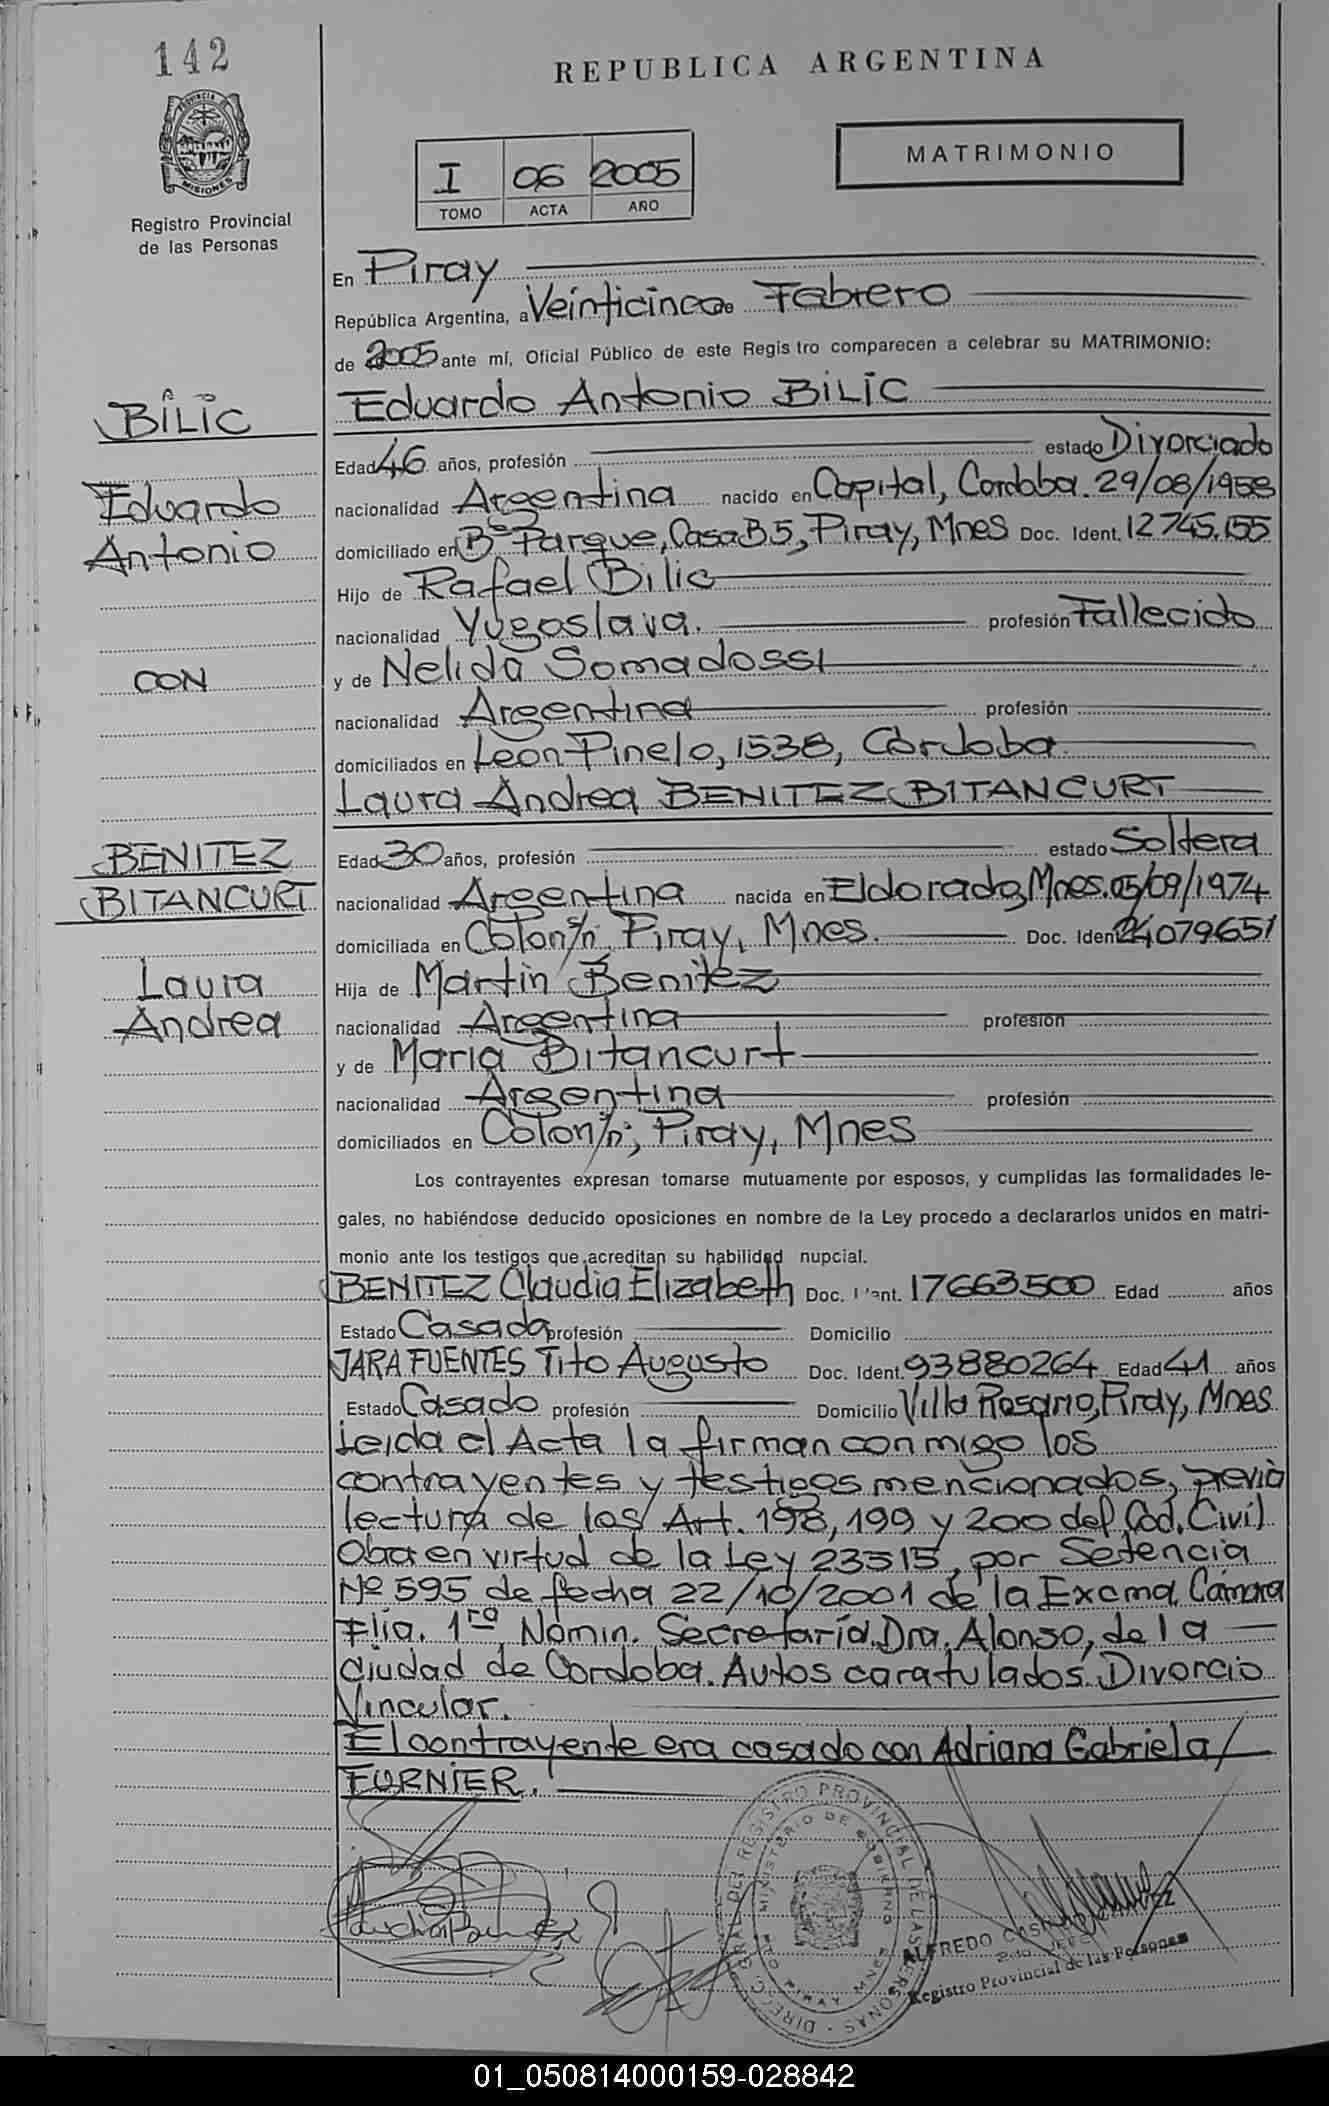 142
REPUBLICA ARGENTINA
MATRIMONIO
PROVINCIA DE
MISIONES
Registro Provincial
de las Personas
I 06 2005
TOMO ACTA AÑO
En Piray
República Argentina, a Veinticinco de Febrero
de 2005 ante mí, Oficial Público de este Registro comparecen a celebrar su MATRIMONIO:
BILIC
Eduardo Antonio BILIC
Edad 46 años, profesión estado Divorciado
Eduardo
nacionalidad Argentina nacido en Capital, Cordoba. 29/08/1958
Antonio
domiciliado en Bº Parque, Casa B5, Piray, Mnes Doc. Ident. 12745.155
Hijo de Rafael Bilic
nacionalidad Yugoslava. profesión Fallecido
CON
y de Nelida Somadossi
nacionalidad Argentina profesión
domiciliados en Leon Pinelo, 1538, Córdoba
Laura Andrea BENITEZ BITANCURT
BENITEZ
Edad 30 años, profesión estado Soltera
BITANCURT
nacionalidad Argentina nacida en Eldorado, Mnes. 05/09/1974
domiciliada en Colon s/n, Piray, Mnes. Doc. Iden 24079651
Laura
Hija de Martin Benitez
Andrea
nacionalidad Argentina profesión
y de Maria Bitancurt
nacionalidad Argentina profesión
domiciliados en Colon s/n; Piray, Mnes
Los contrayentes expresan tomarse mutuamente por esposos, y cumplidas las formalidades le-
gales, no habiéndose deducido oposiciones en nombre de la Ley procedo a declararlos unidos en matri-
monio ante los testigos que acreditan su habilidad nupcial.
BENITEZ Claudia Elizabeth Doc. Ident. 17663500 Edad años
Estado Casada profesión Domicilio
JARA FUENTES Tito Augusto Doc. Ident. 93880264 Edad 41 años
Estado Casado profesión Domicilio Villa Rosario, Piray, Mnes
Leida el Acta la firman conmigo los
contrayentes y testigos mencionados, previa
lectura de los Art. 198, 199 y 200 del Cod. Civil
Oba en virtud de la Ley 23515, por Setencia
Nº 595 de fecha 22/10/2001 de la Excma. Cámara
Flia. 1ra Nomin. Secretaría. Dra. Alonso, de la
Ciudad de Cordoba. Autos caratulados: Divorcio
Vincular.
El contrayente era casado con Adriana Gabriela
FURNIER.
DIRECC. GRAL. DEL REGISTRO PROVINCIAL DE LAS PERSONAS
MINISTERIO DE GOBIERNO
PIRAY MNES
ALFREDO
JEFE
Registro Provincial de las Personas
01_050814000159-028842